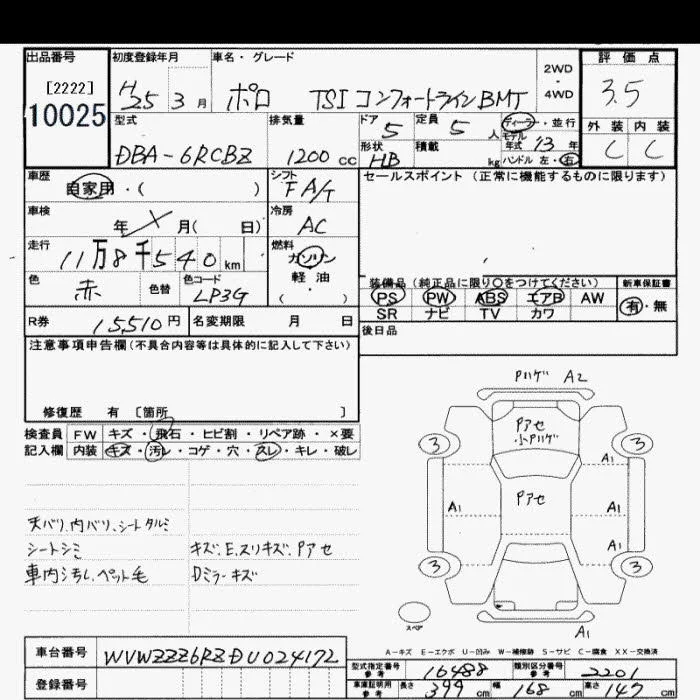 出品番号 初度登録年月 車名・グレード 2WD・4WD 評価点
[2222]
10025 H25 3月 ポロ TSI コンフォートラインBMT 3.5
型式 排気量 ドア 定員 ディーラー・並行 外装 内装
DBA-6RCBZ 1200cc 5 5人 モデル年式 13年 C C
形状 HB 積載 kg ハンドル 左・右
車歴 自家用・( ) シフト F A/T セールスポイント (正常に機能するものに限ります)
車検 年 月( 日) 冷房 AC
走行 11万8千540km 燃料 ガソリン
軽・油
( ・ )
色 赤 色替 色コード LP3G
装備品 (純正品に限り〇をつけてください) 新車保証書
PS PW ABS エアB AW 有・無
SR ナビ TV カワ
R券 15,510円 名変期限 月 日 後日品
注意事項申告欄(不具合内容等は具体的に記入して下さい)
修復歴 有 〔箇所 〕
検査員 FW キズ・飛石・ヒビ割・リペア跡・×要
記入欄 内装 キズ・汚レ・コゲ・穴・スレ・キレ・破レ
天バリ、内バリ、シートタルミ
シートシミ キズ、E、スリキズ、Pアセ
車内汚し、ペット毛 Dミラーキズ
Pハゲ A2
Pアセ
小Pハゲ
3 3
A1
Pアセ
A1 A1
A1
3 3
スペア
A1
A-キズ E-エクボ U-凹み W-補修跡 S-サビ C-腐食 XX-交換済
車台番号 WVWZZZ6RZDU024172
登録番号
型式指定番号 参考 16488 類別区分番号 参考 2201
車庫証明用 参考 長さ 399cm 幅 168cm 高さ 147cm